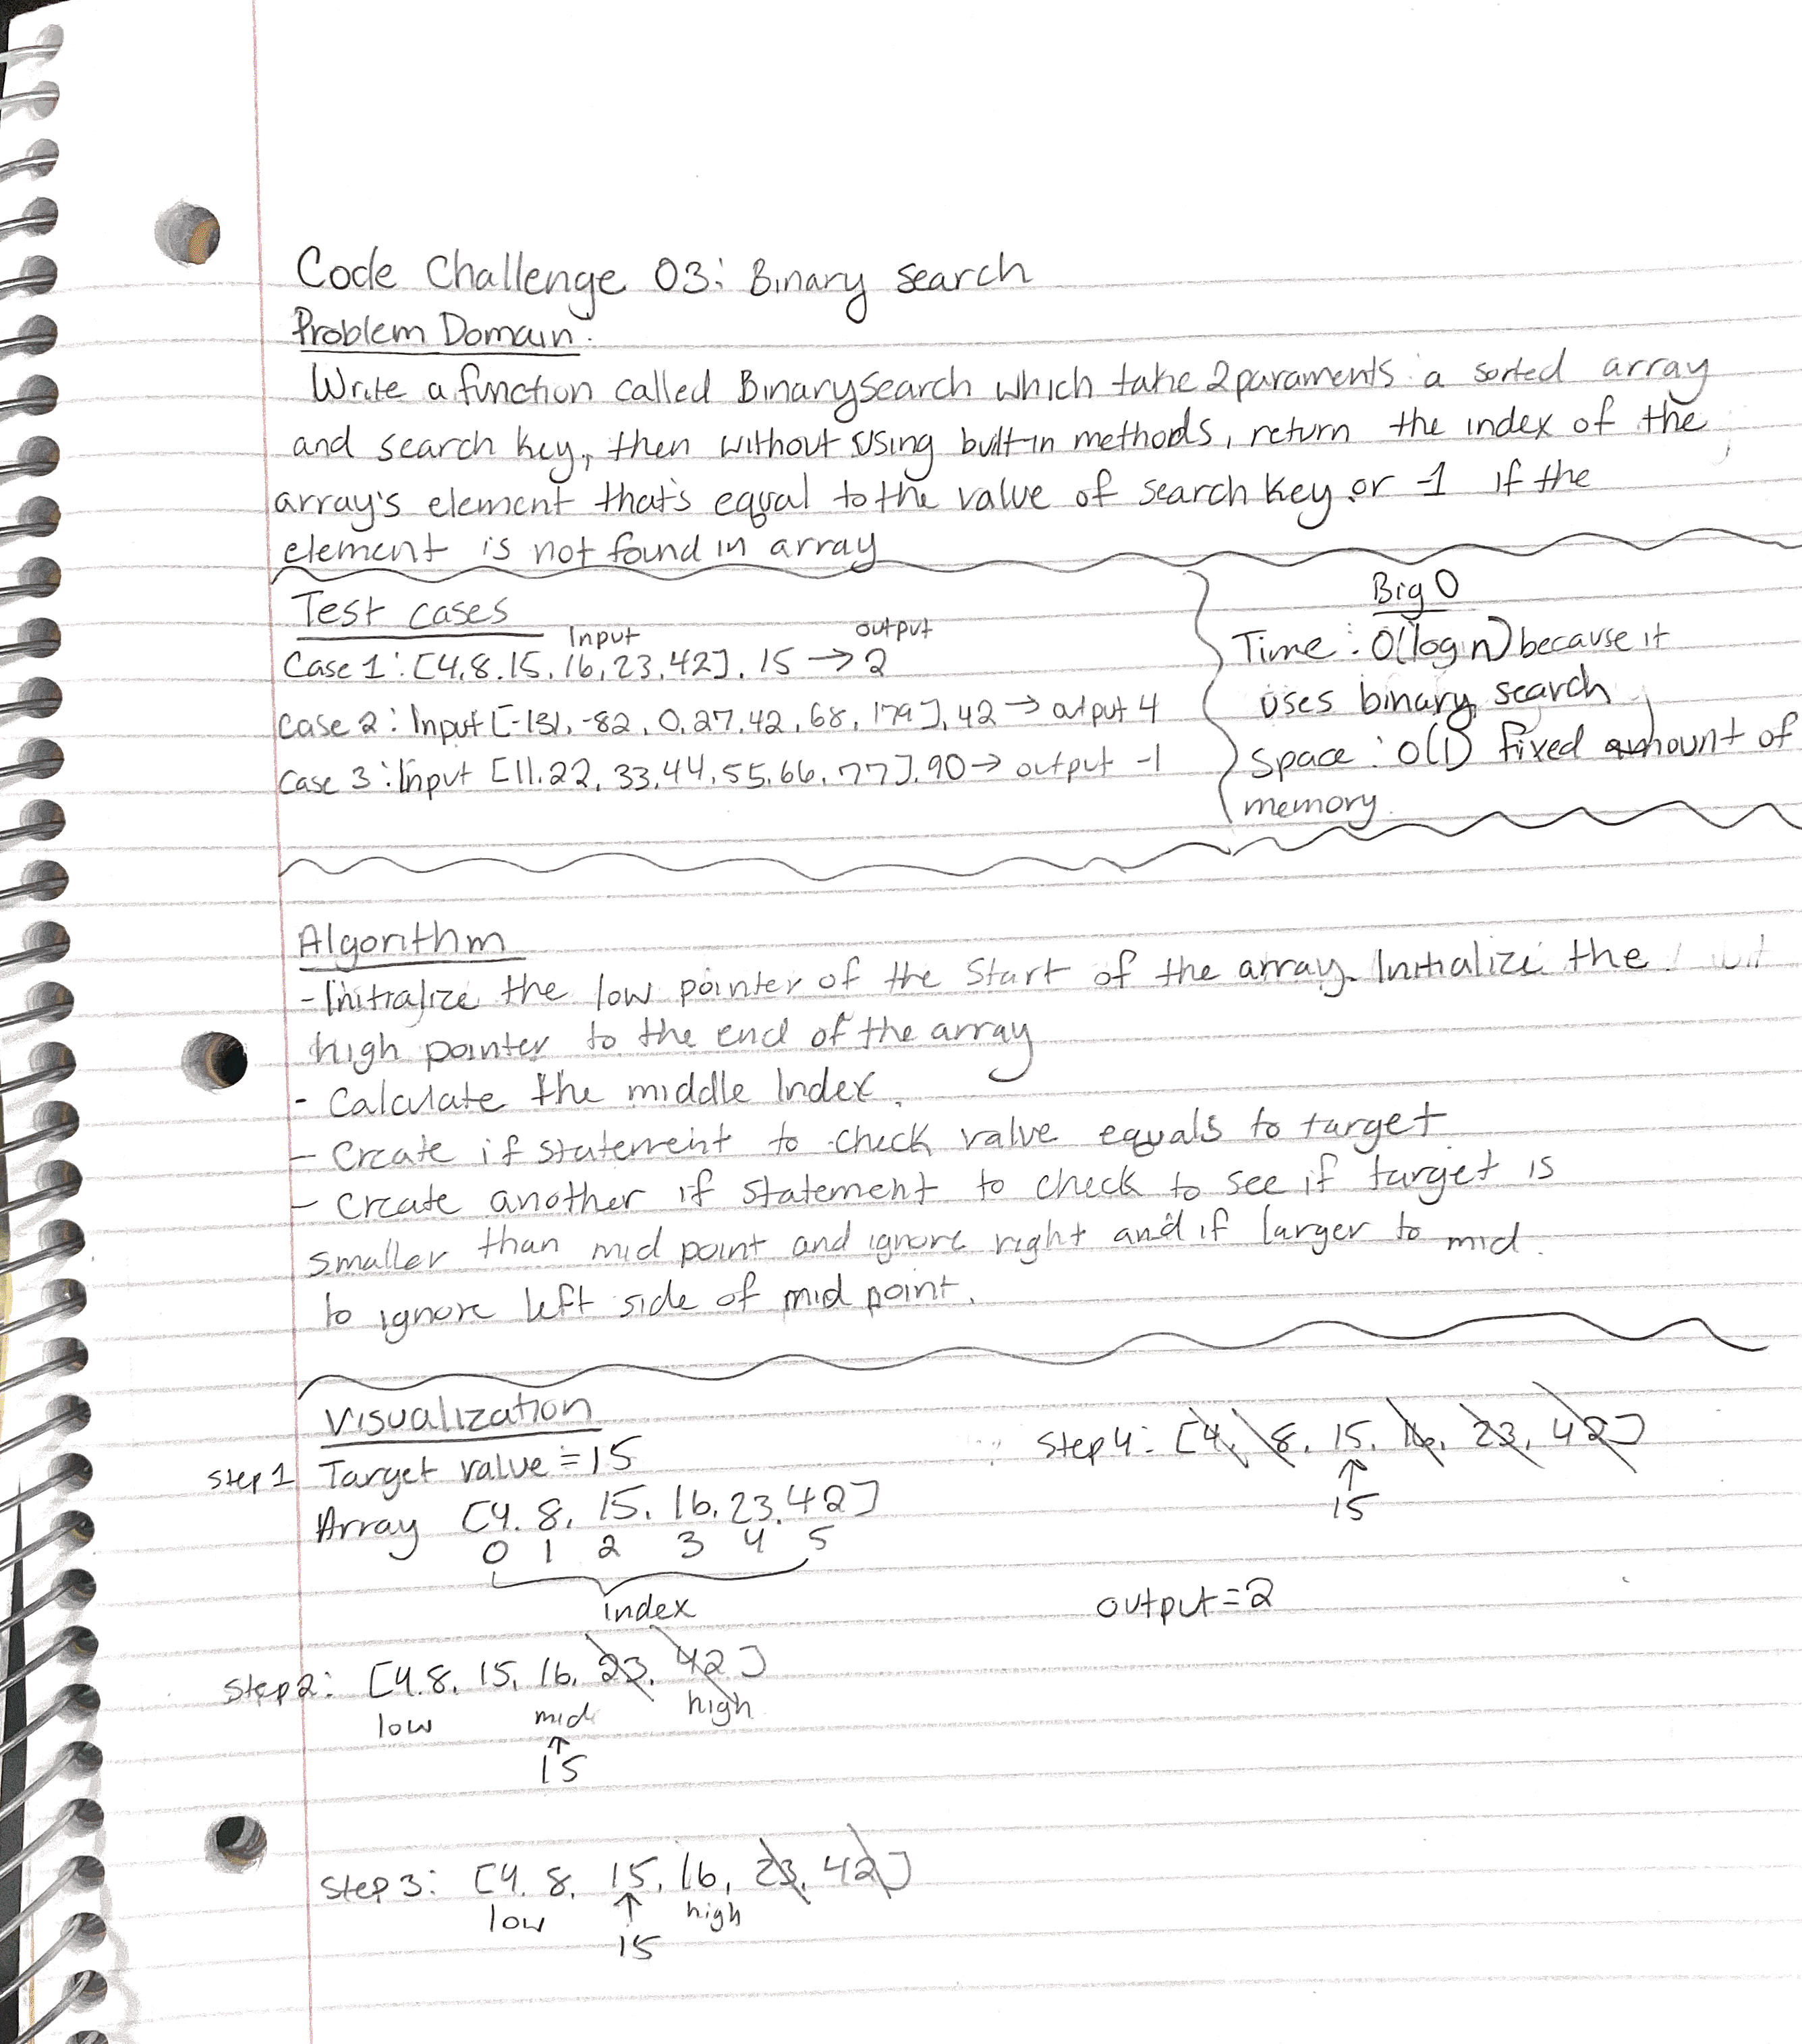 Code Challenge 03: Binary search
Problem Domain.
Write a function called BinarySearch which take 2 paraments : a sorted array
and search key, then without using built-in methods, return the index of the
array's element that's equal to the value of search key or -1 if the
element is not found in array
Test cases
Input output
Case 1 : [4,8.15,16,23,42], 15 → 2
Case 2 : Input [-131, -82, 0,27,42, 68, 179], 42 → output 4
Case 3 : Input [11.22, 33,44,55,66,77],90 → output -1
Big O
Time : O(log n) because it
uses binary search
Space : O(1) fixed amount of
memory.
Algorithm
- Initialize the low pointer of the Start of the array. Initialize the
high pointer to the end of the array
- Calculate the middle Index.
- Create if statement to check value equals to target
- Create another if statement to check to see if target is
smaller than mid point and ignore right and if larger to mid
to ignore left side of mid point.
Visualization
Step 1 Target value = 15
Array [4. 8, 15, 16, 23, 42]
0 1 2 3 4 5
index
Step 2: [4.8, 15, 16, 23, 42]
low mid high
15
Step 3: [4. 8, 15, 16, 23, 42]
low high
15
Step 4: [4, 8, 15, 16, 23, 42]
15
output = 2